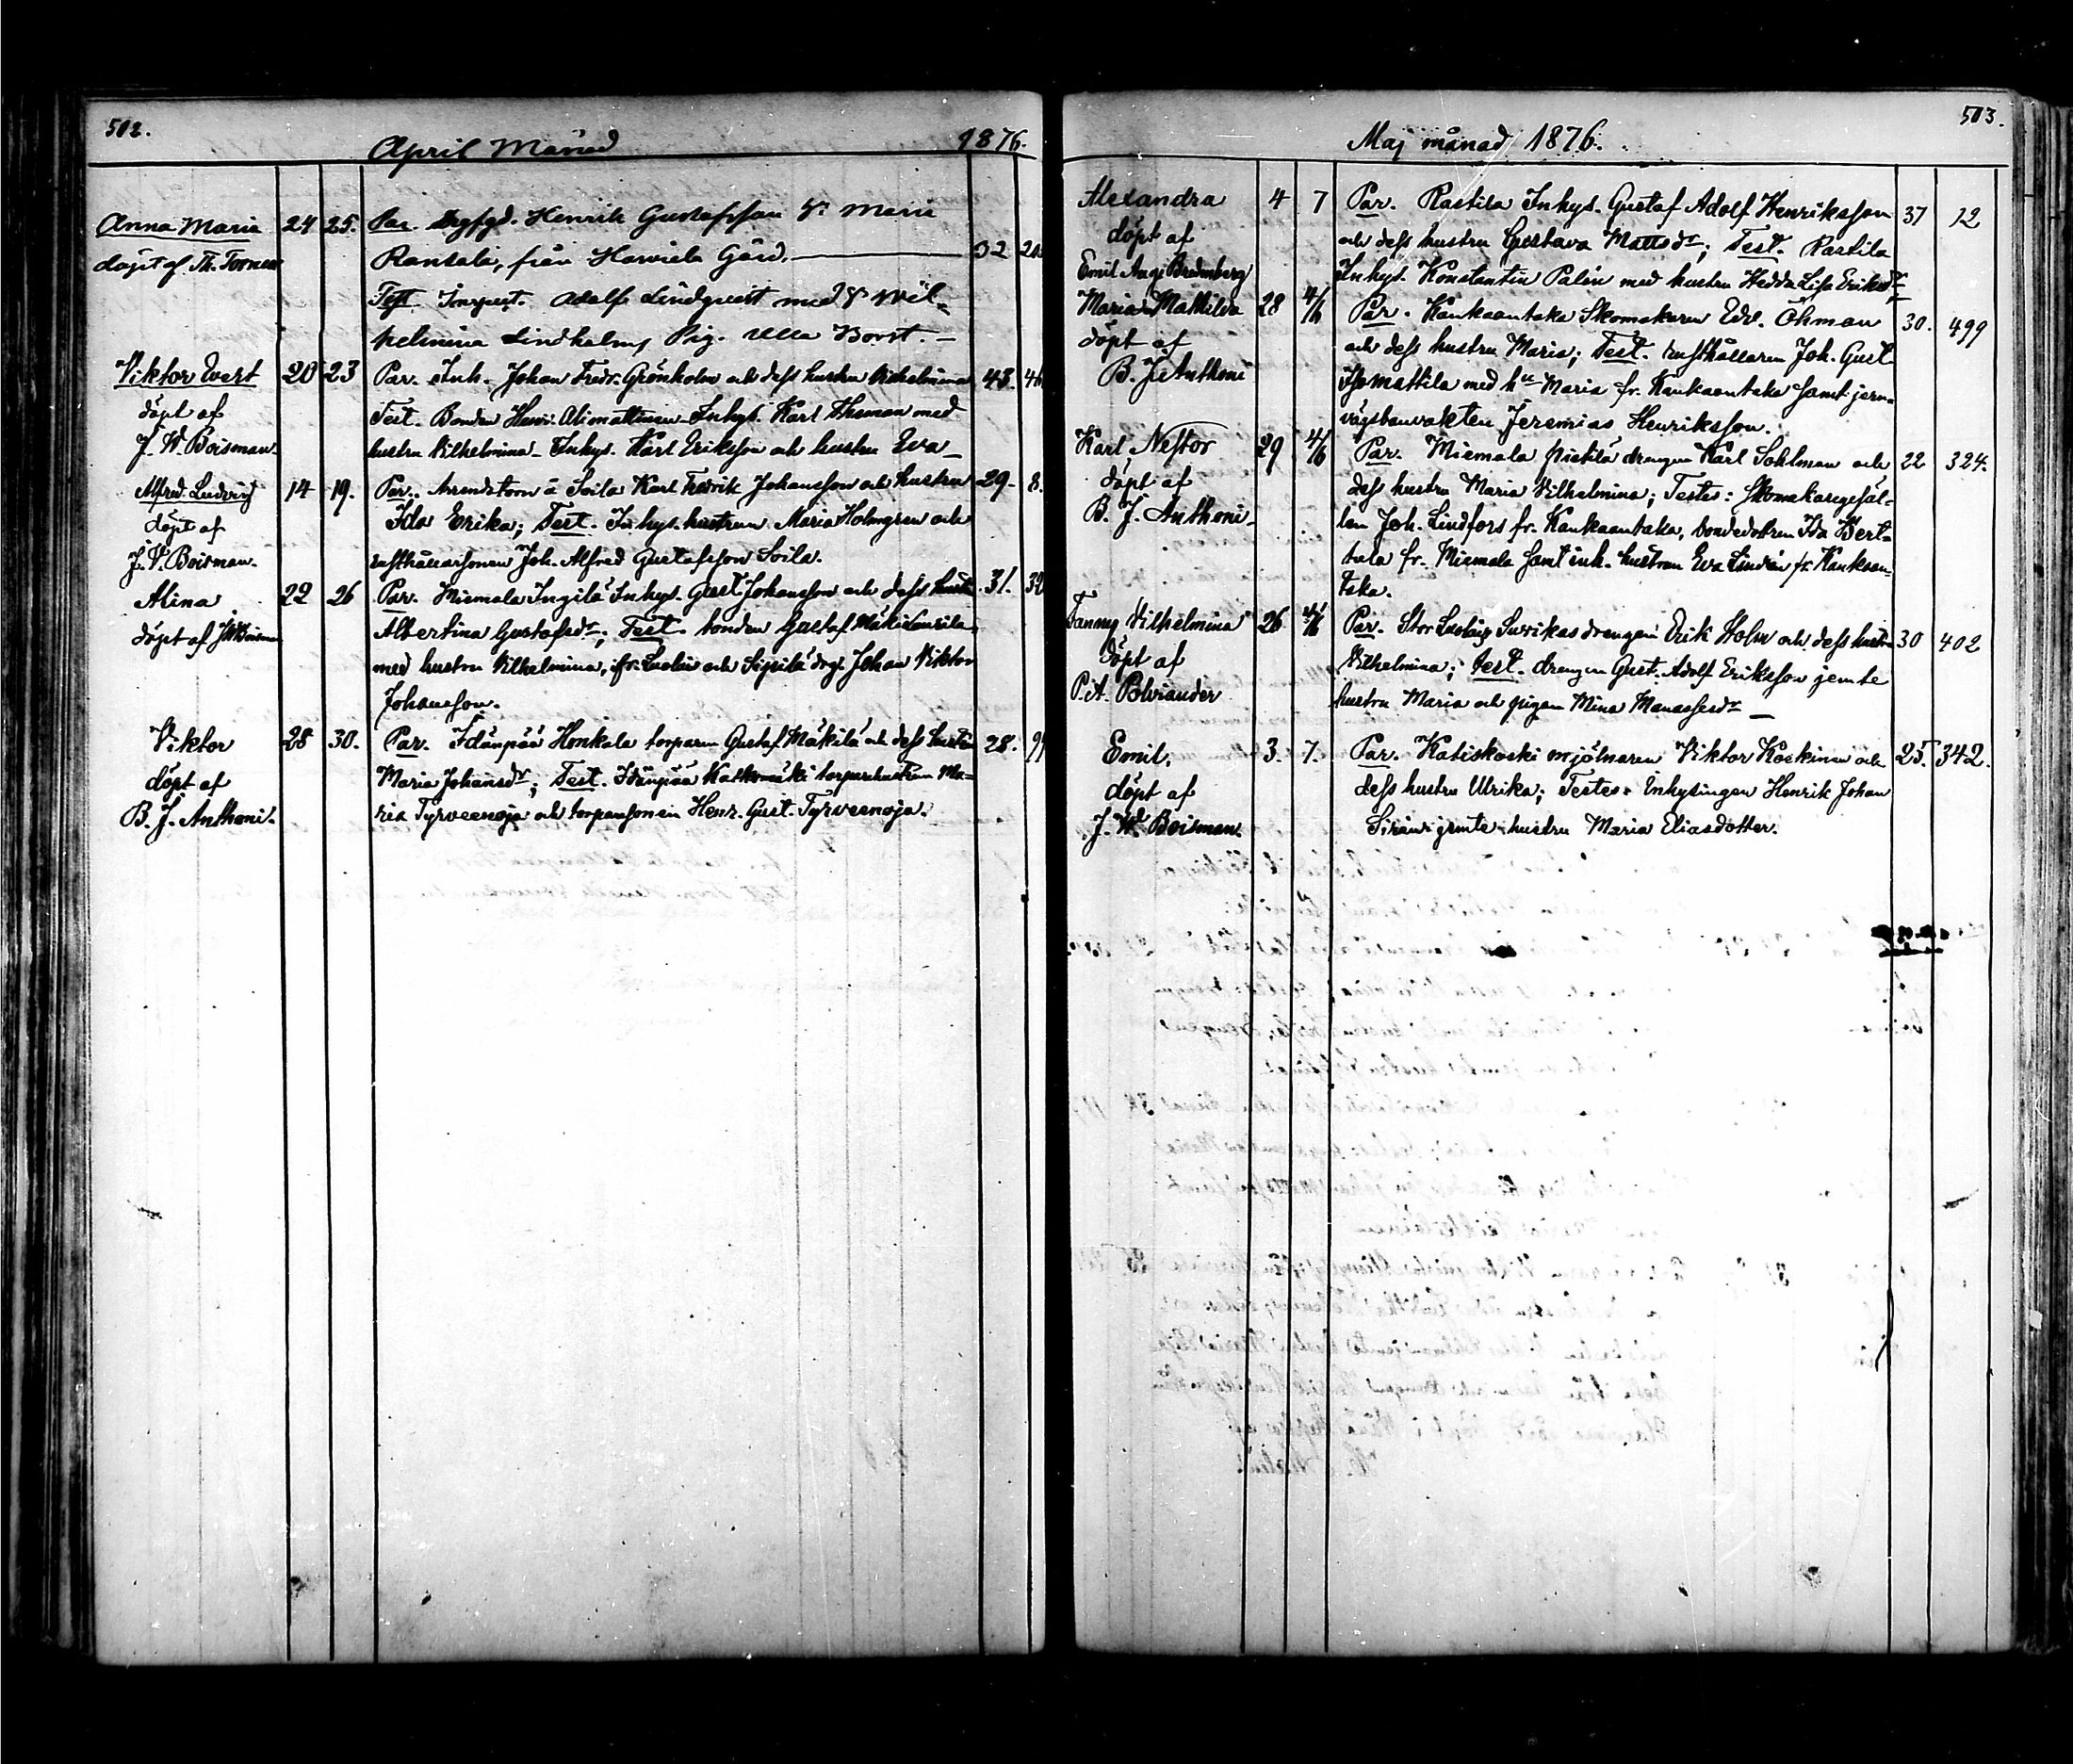 502.
April Månad 1876.
Anna Maria 24 25. Par. Henrik Gustafsson & Maria
döpt af Th. Tornen Rantala, från Haviala Gård. 32
Test. Inspegt. Adolf Lindqvist med & Wil-
helmina Lindholm, Pig. Ulla Borst.
Viktor Evert 20 23 Par. Inh. Johan Fredr. Grönholm och dess hustru Vilhelmina 43.
döpt af Test. Bonden Henr. Alimattinen Inhys. Karl Thuman med
J. W. Boisman. hustru Vilhelmina Inhys. Karl Eriksson och hustru Eva
Alfred Ludvig 14 19. Par. Arrendatorn å Soila Karl Fredrik Johansson och hustru 29. 8.
döpt af Ida Erika; Test. Inhys. hustrun Maria Holmgren och
J. W. Boisman. rusthållarsonen Joh. Alfred Gustafsson Soila.
Alina 22 26 Par. Miemala Ingilä Inhys. Gust. Johansson och dess hustru 31. 32
döpt af J W Boisman Albertina Gustafsdr; Test. bonden Gustaf Mäki Laurila
med hustru Vilhelmina, fr. Luolais och Sipilä drg. Johan Viktor
Johansson.
Viktor 28 30. Par. Idänpää Honkala torparen Gustaf Mäkilä och dess hustru 28.
döpt af Maria Johansdr; Test. Idänpää Katkomäki torparehustrun Ma-
B. J. Anthoni. ria Tyrveenoja och torparsonen Henr. Gust. Tyrveenoja.
503.
Maj månad 1876.
Alexandra 4 7 Par. Rastila Inhys. Gustaf Adolf Henriksson 37 12
döpt af och dess hustru Gustava Mattsdr; Test. Rastila
Emil Aug. Bredenberg Inhys. Konstantin Palin med hustru Hedda Lisa Eriksdr
Maria Mathilda 28 4/6 Par. Kankaantaka Skomakaren Edv. Öhman 30. 499
döpt af och dess hustru Maria; Test. rusthållaren Joh. Gust.
B. J. Anthoni Isomattila med hu Maria fr. Kankaantaka samt jern-
vägsbanvakten Jeremias Henriksson.
Karl Nestor 29 4/6 Par. Miemala Pietilä drengen Karl Sohlman och 22 324.
döpt af dess hustru Maria Vilhelmina; Testes: Skomakaregesäl-
B. J. Anthoni len Joh. Lindfors fr. Kankaantaka, bondedottren Ida Bert-
tula fr. Miemala samt inh. hustrun Eva Lindén fr. Kankaan-
taka.
Fanny Vilhelmina 26 4/6 Par. Stor Luolais Suvikas drengen Erik Holm och dess hustru 30 402
döpt af Vilhelmina; Test. drengen Gust. Adolf Eriksson jemte
P. A. Polviander hustru Maria och pigan Mina Manassesdr
Emil, 3. 7. Par. Katiskoski mjölnaren Viktor Koskinen och 25. 342.
döpt af dess hustru Ulrika; Testes: Inhysingen Henrik Johan
J. W. Boisman. Sirén jemte hustru Maria Eliasdotter.